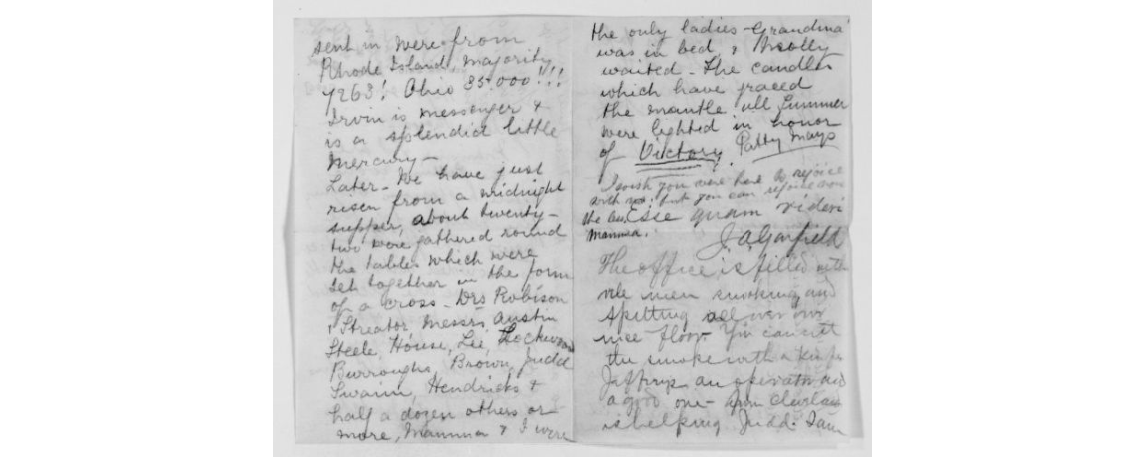 sent in were from
Rhode Island, majority
7263! Ohio 35.000!!!
Irvin is messenger &
is a splendid little
Mercury—
Later—We have just
risen from a midnight
supper, about twenty-
two were gathered round
the tables which were
set together in the form
of a cross—Drs Robison
& Streator, Messrs Austin
Steele, House, Lee, Lockwood
Burroughs, Brown, Judd
Swaim, Hendricks &
half a dozen others or
more, Mamma & I were
the only ladies—Grandma
was in bed, & Molly
waited—The candles
which have graced
the mantle all summer
were lighted in honor
of Victory. Patty Mays
I wish you were here to rejoice
with us, but you can rejoice
the
Mamma.
Esse quam videri
J.A. Garfield
The office is filled with
vile men smoking and
spitting all over our
nice floor. You can cut
the smoke with a knife
an operator and
a good one—
is helping Judd. I am